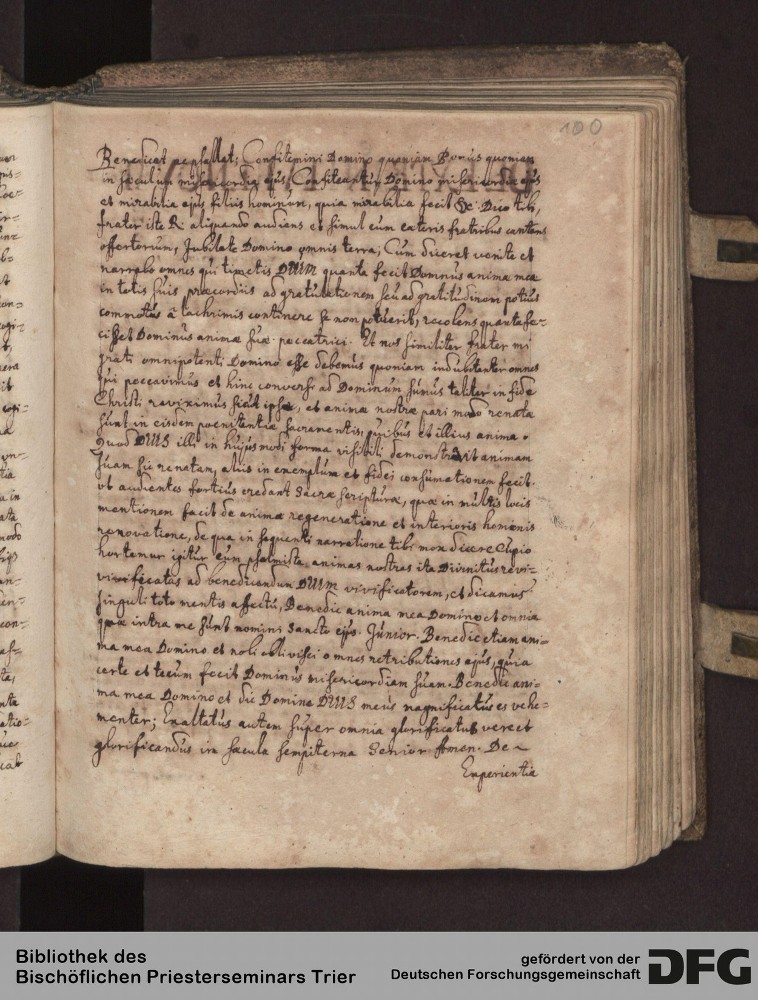 100
Benedicat ac psallat; Confitemini Domino quoniam Bonus quoniam
in sæculum misericordia ejus, Confiteantur Domino misericordiæ ejus
et mirabilia ejus filiis hominum, quia mirabilia fecit &c. Dico tibi,
frater iste R. aliquando audiens et simul cum cæteris fratribus cantans
offertorium, Jubilate Domino omnis terra, Cum diceret venite et
narrabo omnes qui timetis DEUM quanta fecit Dominus animæ meæ
in totis suis præcordiis ad gratulationem seu ad gratitudinem potius
commotus à lachrimis continere se non potuerit, recolens quanta fe-
cisset Dominus animæ suæ peccatrici. Et nos similiter frater mi
grati omnipotenti Domino esse debemus quoniam indubitanter omnes
qui peccavimus et hinc conversi ad Dominum sumus taliter in fide
Christi reviximus sicut ipse, et anima nostra pari modo renata
sunt in eisdem poenitentiæ sacramentis, quibus et illius anima.
Quod DEUS illi in hujusmodi forma visibili demonstravit animam
suam sic renatam, aliis in exemplum et fidei consumationem fecit.
ut audientes fortius credant Sacræ scripturæ, quæ in multis locis
mentionem facit de animæ regeneratione et interioris hominis
renovatione, de qua in sequenti narratione tibi mox dicere Cupio
hortemur igitur cum psalmista animas nostras ita Divinitus revi-
vivificatas ad benedicendum DEUM vivificatorem, et dicamus
singuli toto mentis affectu, Benedic anima mea Domino et omnia
quæ intra me sunt nomini sancto ejus. Junior. Benedic etiam ani-
ma mea Domino et noli oblivisci omnes retributiones ejus, quia
certe et tecum fecit Dominus misericordiam suam. Benedic ani-
ma mea Domino et dic Domine DEUS meus magnificatus es vehe-
menter; Exaltatus autem super omnia glorificatus vere et
glorificandus in sæcula sempiterna Senior Amen. De
Experientia
Bibliothek des
Bischöflichen Priesterseminars Trier
gefördert von der
Deutschen Forschungsgemeinschaft
DFG